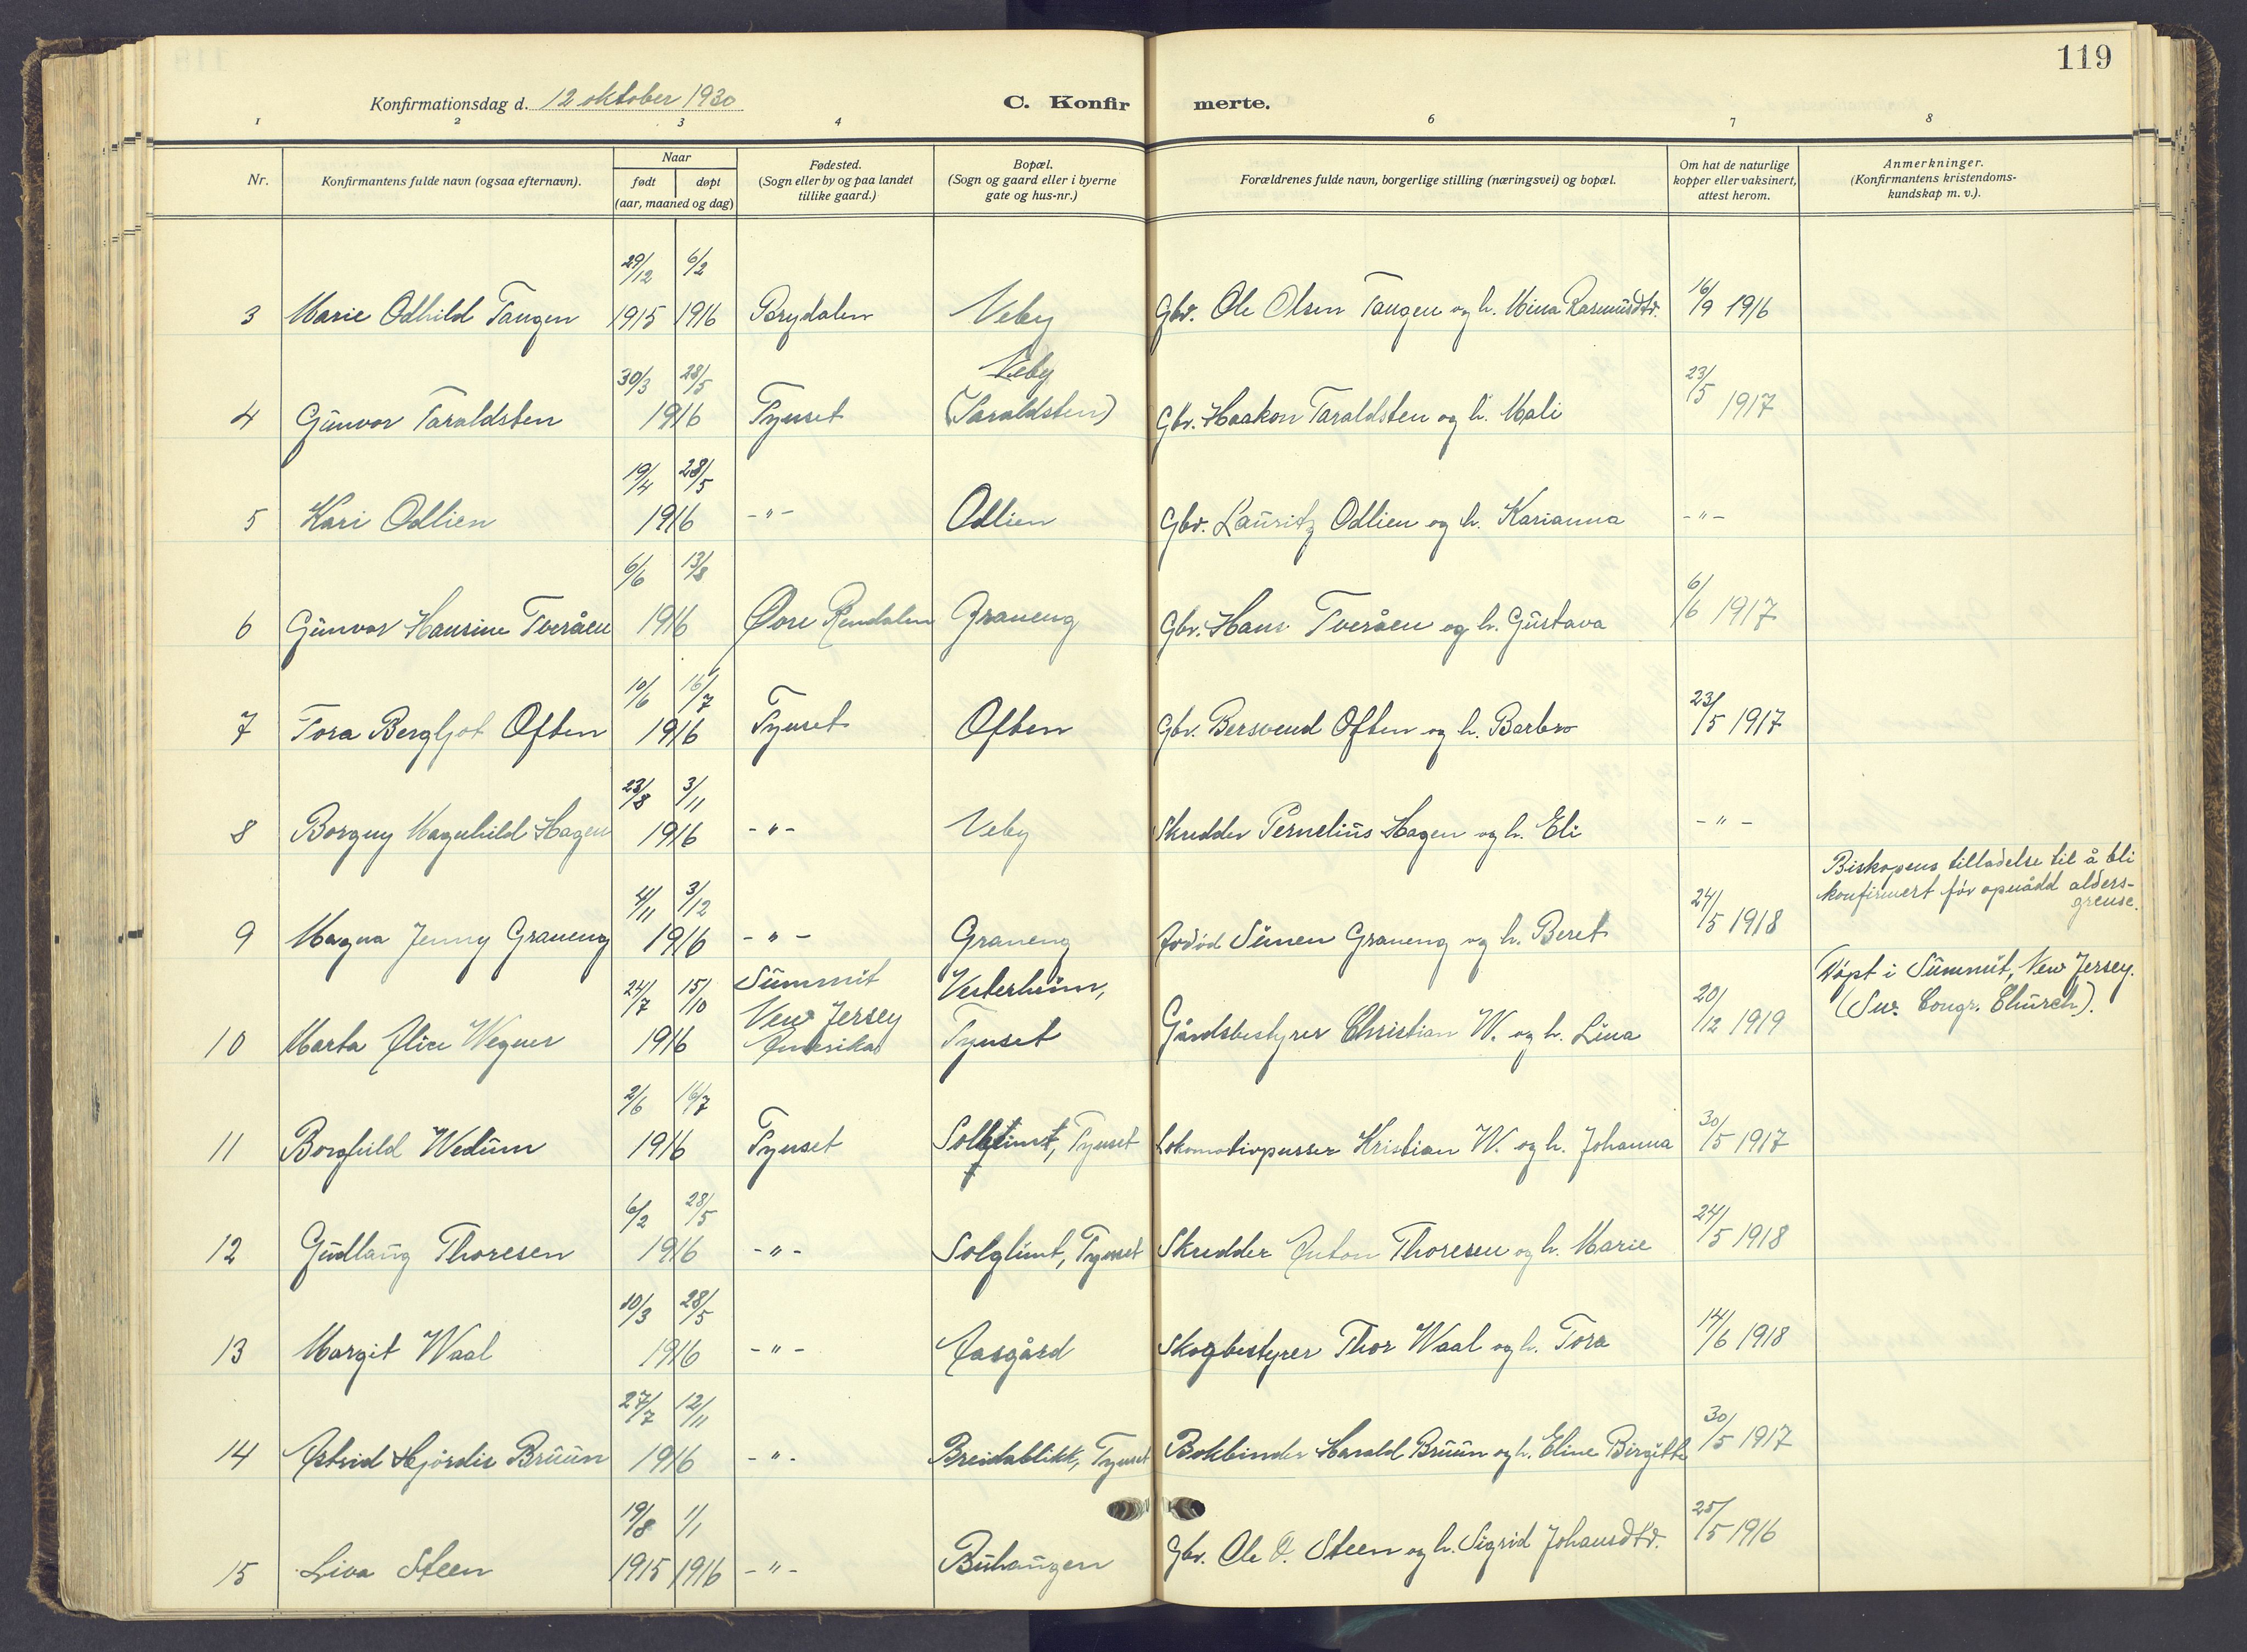 119
Konfirmationsdag d. 12 oktober 1930
C. Konfir merte.
1 2 3 4 6 7 8
Nr.
Konfirmantens fulde navn (ogsaa efternavn).
Naar
født døpt
(aar, maaned og dag)
Fødested.
(Sogn eller by og paa landet
tillike gaard.)
Bopæl.
(Sogn og gaard eller i byerne
gate og hus-nr.)
Forældrenes fulde navn, borgerlige stilling (næringsvei) og bopæl.
Om hat de naturlige
kopper eller vaksinert,
attest herom.
Anmerkninger.
(Konfirmantens kristendoms-
kundskap m. v.).
29/12 6/2
3 Marie Odhild Tangen 1915 1916 Brydalen Veby Gbr. Ole Olsen Tangen og h. Mina Rasmusdtr. 16/9 1916
30/3 28/5 Veby 23/5
4 Gunvor Taraldsten 1916 Tynset (Taraldsten) Gbr. Haakon Taraldsten og h. Mali 1917
19/4 28/5
5 Kari Odlien 1916 -"- Odlien Gbr. Lauritz Odlien og h. Karianna -"-
6/6 13/8
6 Gunvor Hansine Tveråen 1916 Øvre Rendalen Graneng Gbr. Hans Tveråen og h. Gustava 6/6 1917
10/6 16/7
7 Tora Bergljot Often 1916 Tynset Often Gbr. Bersvend Often og h. Barbro 23/5 1917
23/8 3/11
8 Borgny Magnhild Hagen 1916 -"- Veby Skredder Pernelius Hagen og h. Eli -"-
Biskopens tilladelse til å bli
konfirmert før opnådd alders-
grense.
4/11 3/12
9 Magna Jenny Graneng 1916 -"- Graneng Jordbr. Simen Graneng og h. Beret 24/5 1918
24/7 15/10 Summit Vesterheim, Døpt i Summit, New Jersey.
New Jersey (Sw. Congr. Church).
10 Marta Alice Wegner 1916 Amerika Tynset Gårdsbestyrer Christian W. og h. Lina 20/12 1919
2/6 16/7
11 Borghild Wedum 1916 Tynset Solglimt, Tynset Lokomotivpusser Kristian W. og h. Johanna 30/5 1917
6/2 28/5
12 Gudlaug Thoresen 1916 -"- Solglimt, Tynset Skredder Anton Thoresen og h. Marie 24/5 1918
10/3 28/5
13 Margit Waal 1916 -"- Aasgård Skogbestyrer Thor Waal og h. Tora 14/6 1918
27/7 12/11
14 Astrid Hjördis Bruun 1916 -"- Breidablikk, Tynset Bokbinder Harald Bruun og h. Eline Birgitte 30/5 1917
19/8 1/1
15 Liva Steen 1915 1916 -"- Buhaugen Gbr. Ole O. Steen og h. Sigrid Johansdtr. 25/5 1916